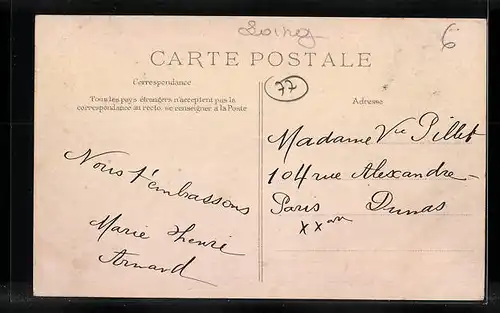 Soirey
6
CARTE POSTALE
77
Correspondance
Tous les pays étrangers n'acceptent pas la
correspondance au recto, se renseigner à la Poste
Nous t'embrassons
Marie Henri
Armand
Adresse
Madame Vve Pillet
104 rue Alexandre-
Paris Dumas
XXem